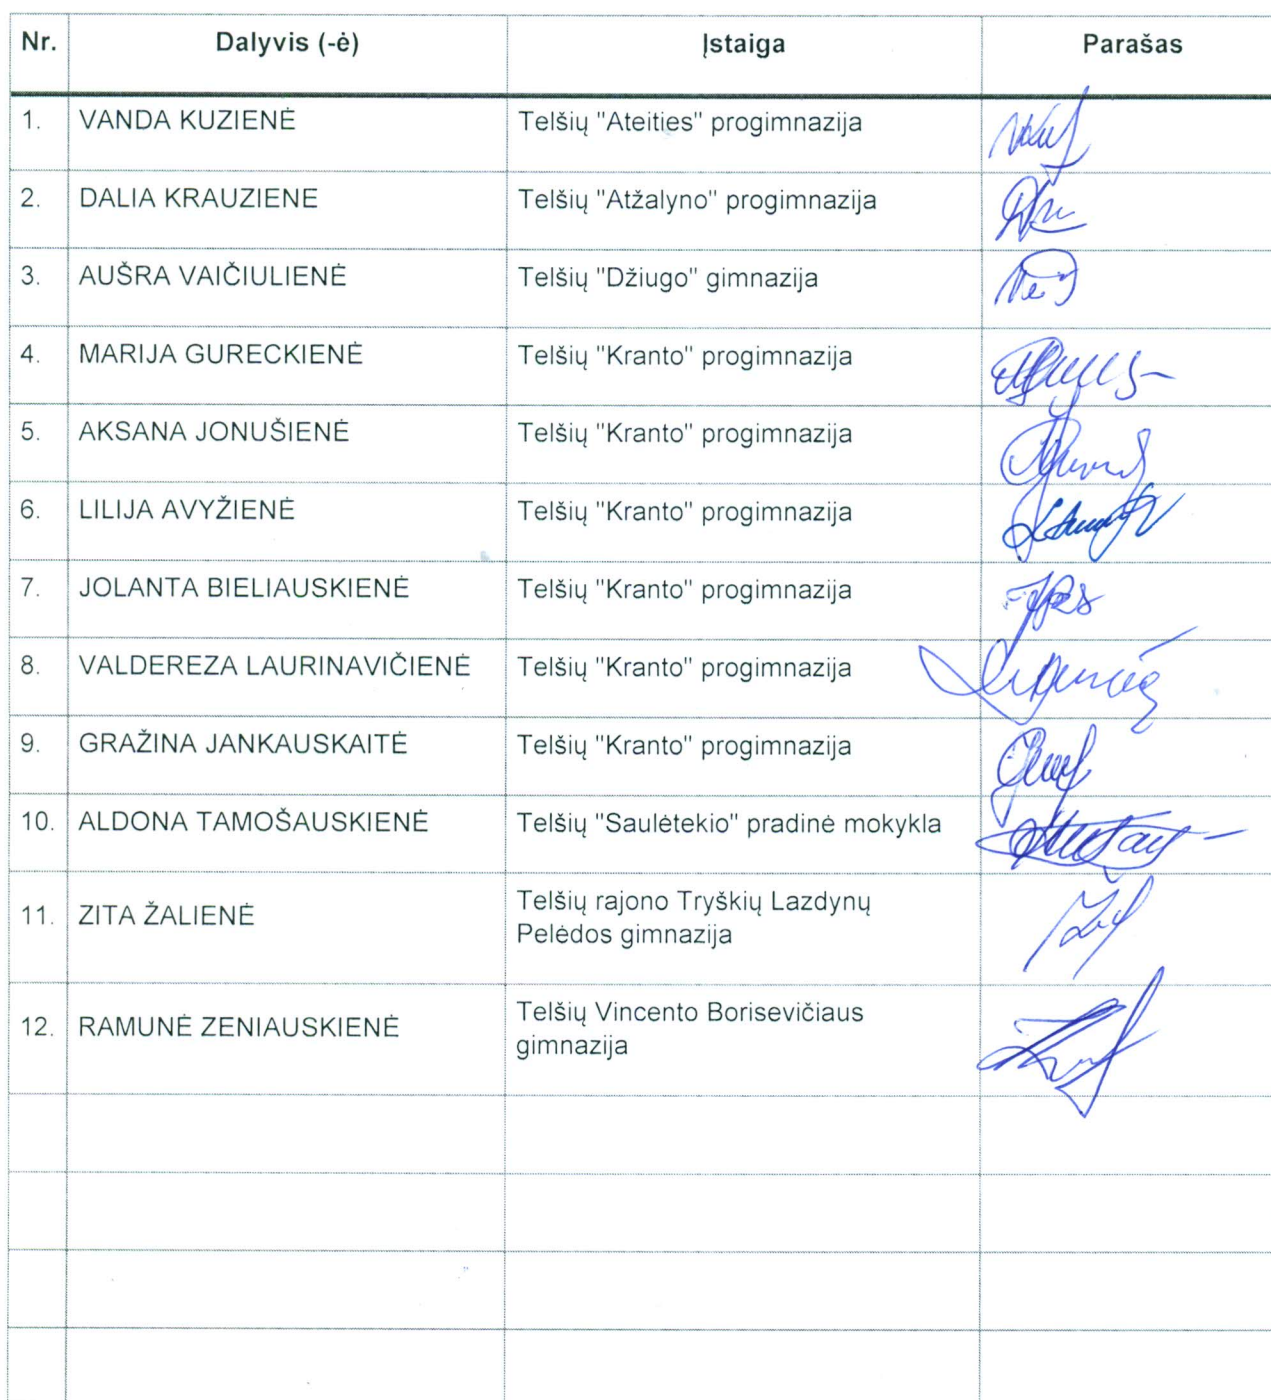 Nr. Dalyvis (-ė) Įstaiga Parašas
1. VANDA KUZIENĖ Telšių "Ateities" progimnazija
2. DALIA KRAUZIENE Telšių "Atžalyno" progimnazija
3. AUŠRA VAIČIULIENĖ Telšių "Džiugo" gimnazija
4. MARIJA GURECKIENĖ Telšių "Kranto" progimnazija
5. AKSANA JONUŠIENĖ Telšių "Kranto" progimnazija
6. LILIJA AVYŽIENĖ Telšių "Kranto" progimnazija
7. JOLANTA BIELIAUSKIENĖ Telšių "Kranto" progimnazija
8. VALDEREZA LAURINAVIČIENĖ Telšių "Kranto" progimnazija
9. GRAŽINA JANKAUSKAITĖ Telšių "Kranto" progimnazija
10. ALDONA TAMOŠAUSKIENĖ Telšių "Saulėtekio" pradinė mokykla
11. ZITA ŽALIENĖ Telšių rajono Tryškių Lazdynų
Pelėdos gimnazija
12. RAMUNĖ ZENIAUSKIENĖ Telšių Vincento Borisevičiaus
gimnazija